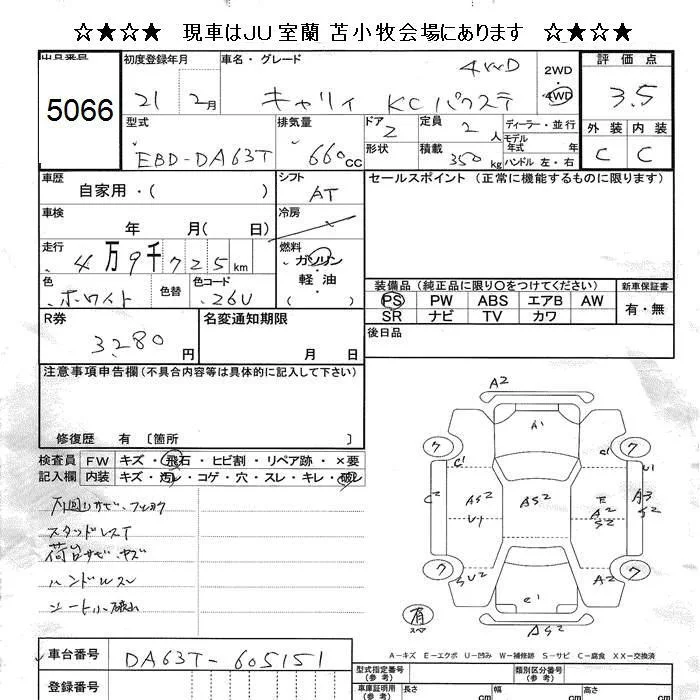 ☆★☆★ 現車はJU室蘭 苫小牧会場にあります ☆★☆★
出品番号 初度登録年月 車名・グレード 4WD 2WD 評価点
5066 21 2月 キャリイ KC パワステ 4WD 3.5
型式 排気量 ドア 2 定員 2人 ディーラー・並行 外装 内装
モデル年式 年
EBD-DA63T 660cc 形状 積載 350kg ハンドル 左・右 C C
車歴 シフト セールスポイント (正常に機能するものに限ります)
自家用・( ) AT
車検 冷房
年 月( 日)
走行 燃料
4万9千725km ガソリン・
軽・油
色 色替 色コード 装備品 (純正品に限り○をつけてください) 新車保証書
ホワイト 26U ( ) PS PW ABS エアB AW 有・無
R券 名変通知期限 SR ナビ TV カワ
3,280円 月 日 後日品
注意事項申告欄 (不具合内容等は具体的に記入して下さい)
修復歴 有 〔箇所 〕
検査員 FW キズ・飛石・ヒビ割・リペア跡・×要
記入欄 内装 キズ・汚レ・コゲ・穴・スレ・キレ・破レ
下回りサビ・フショク
スタッドレスT
荷台サビ・キズ
ハンドルスレ
シート破れ
A2
A1
ワ ワ
C' C' U1
C2 AS2 AS2 E A3
U1 A2 S2
S2
ワ ワ
SU2 A2
C1
有 スペア AS2
A-キズ E-エクボ U-凹み W-補修跡 S-サビ C-腐食 XX-交換済
車台番号 DA63T-605151 型式指定番号(参考) 類別区分番号(参考)
登録番号 車庫証明用(参考) 長さ cm 幅 cm 高さ cm